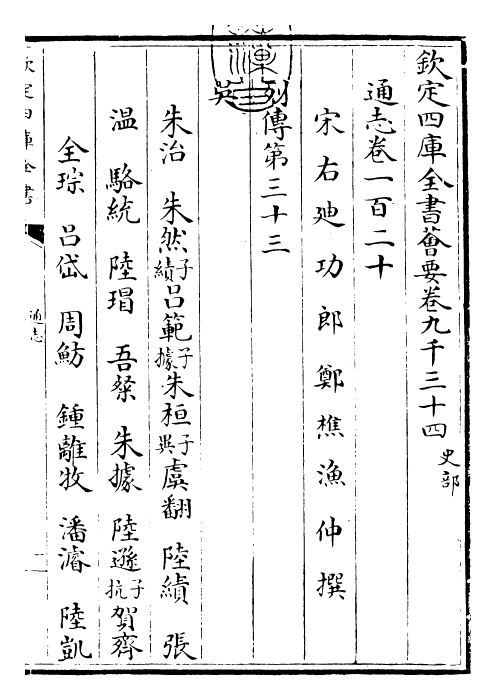 欽定四庫全書薈要卷九千三十四 史部
通志卷一百二十
宋右廸功郎鄭樵漁仲撰
列傳第三十三
吳
朱治 朱然子績 呂範子據 朱桓子異 虞翻 陸績 張
温 駱統 陸瑁 吾粲 朱據 陸遜子抗 賀齊
全琮 呂岱 周魴 鍾離牧 潘濬 陸凱
欽定四庫全書
通志